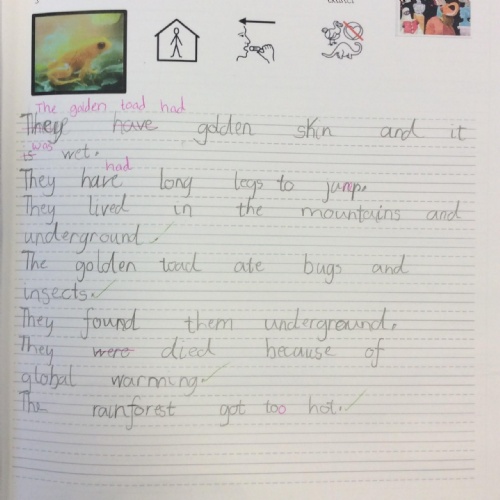 The golden toad had
They have golden skin and it
is was wet.
had
They have long legs to jump.
They lived in the mountains and
underground.
The golden toad ate bugs and
insects.
They found them underground.
They were died because of
global warming.
The rainforest got too hot.